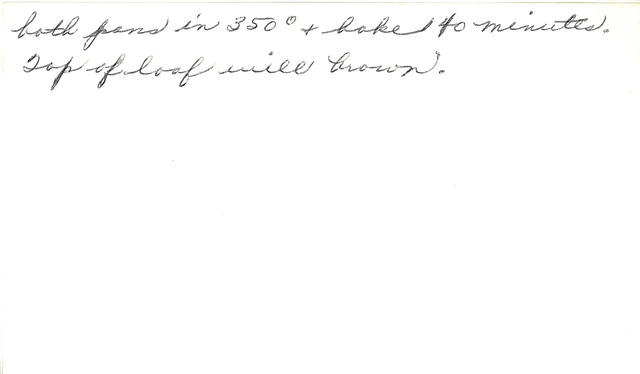 both pans in 350° + bake 40 minutes.
Top of loaf will brown.